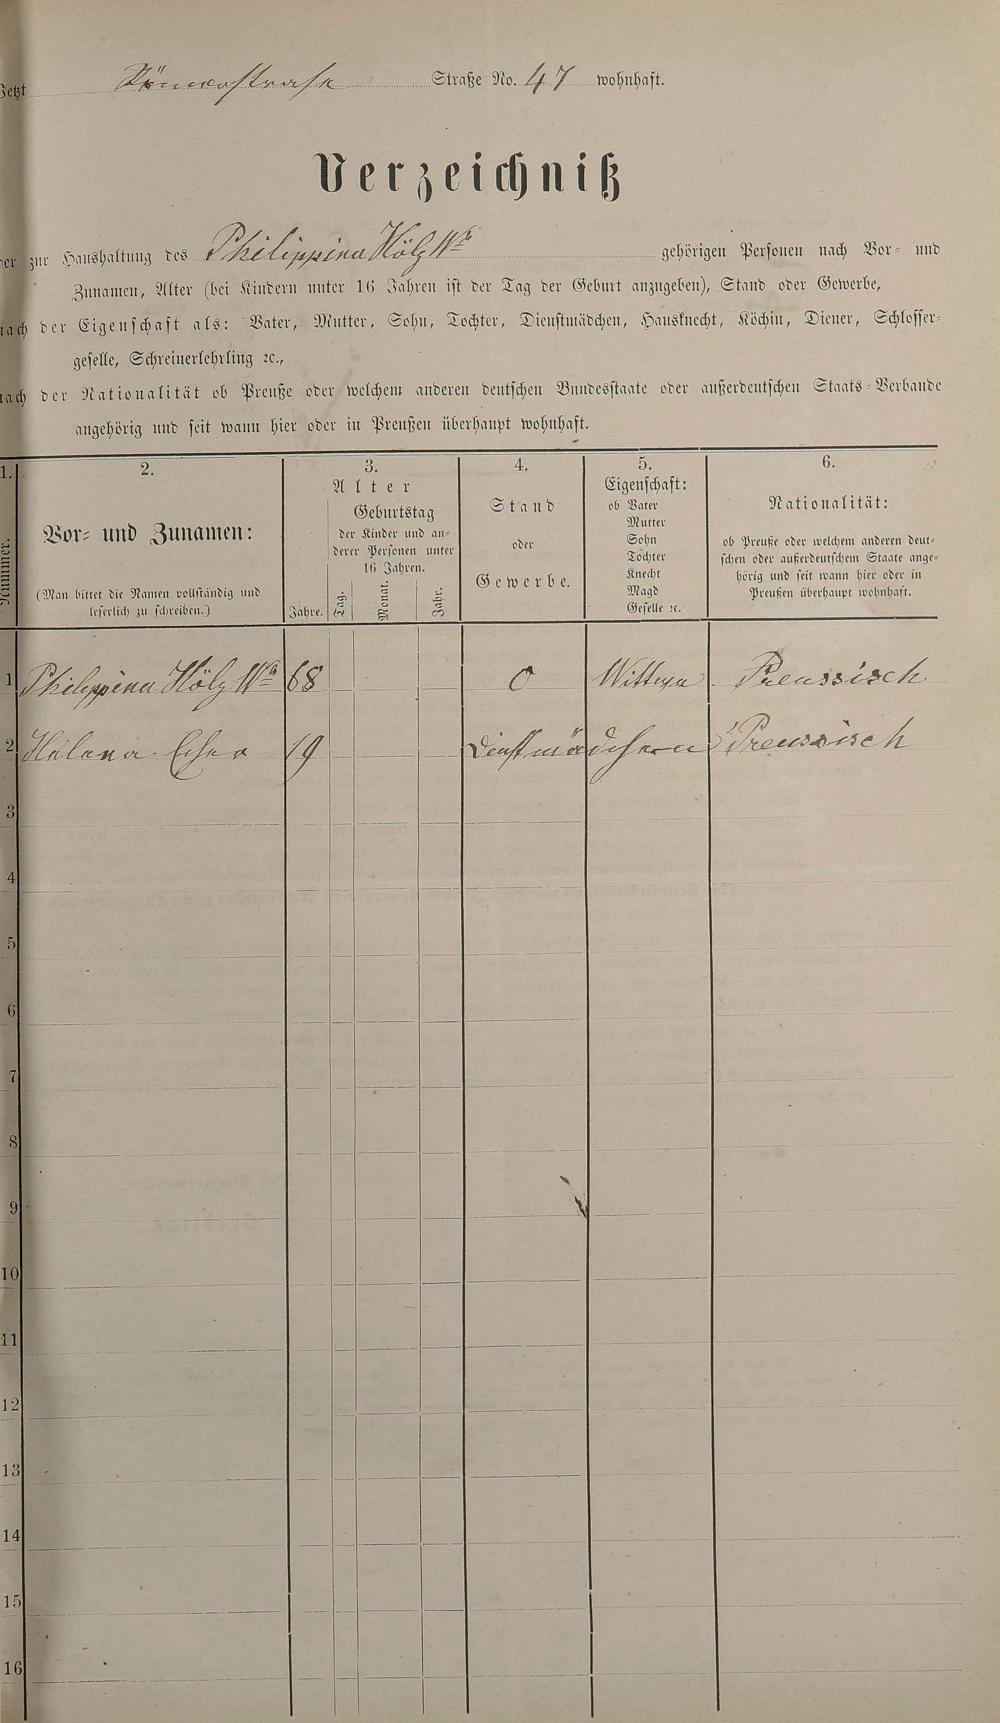 Jetzt Römerstraße Straße No. 47 wohnhaft.
Verzeichniß
der zur Haushaltung des Philippina Hölz Wb gehörigen Personen nach Vor- und
Zunamen, Alter (bei Kindern unter 16 Jahren ist der Tag der Geburt anzugeben), Stand oder Gewerbe,
nach der Eigenschaft als: Vater, Mutter, Sohn, Tochter, Dienstmädchen, Hausknecht, Köchin, Diener, Schlosser-
geselle, Schreinerlehrling ꝛc.,
nach der Nationalität ob Preuße oder welchem anderen deutschen Bundesstaate oder außerdeutschen Staats-Verbande
angehörig und seit wann hier oder in Preußen überhaupt wohnhaft.
1. 2. 3. 4. 5. 6.
Nummer.
Vor- und Zunamen:
(Man bittet die Namen vollständig und
leserlich zu schreiben.)
Alter
Jahre.
Geburtstag
der Kinder und an-
derer Personen unter
16 Jahren.
Tag. Monat. Jahr.
Stand
oder
Gewerbe.
Eigenschaft:
ob Vater
Mutter
Sohn
Tochter
Knecht
Magd
Geselle ꝛc.
Nationalität:
ob Preuße oder welchem anderen deut-
schen oder außerdeutschem Staate ange-
hörig und seit wann hier oder in
Preußen überhaupt wohnhaft.
1 Philippina Hölz Wb 68 0 Wittwe Preussisch
2 Helena 19 Dienstmädchen Preussisch
3
4
5
6
7
8
9
10
11
12
13
14
15
16